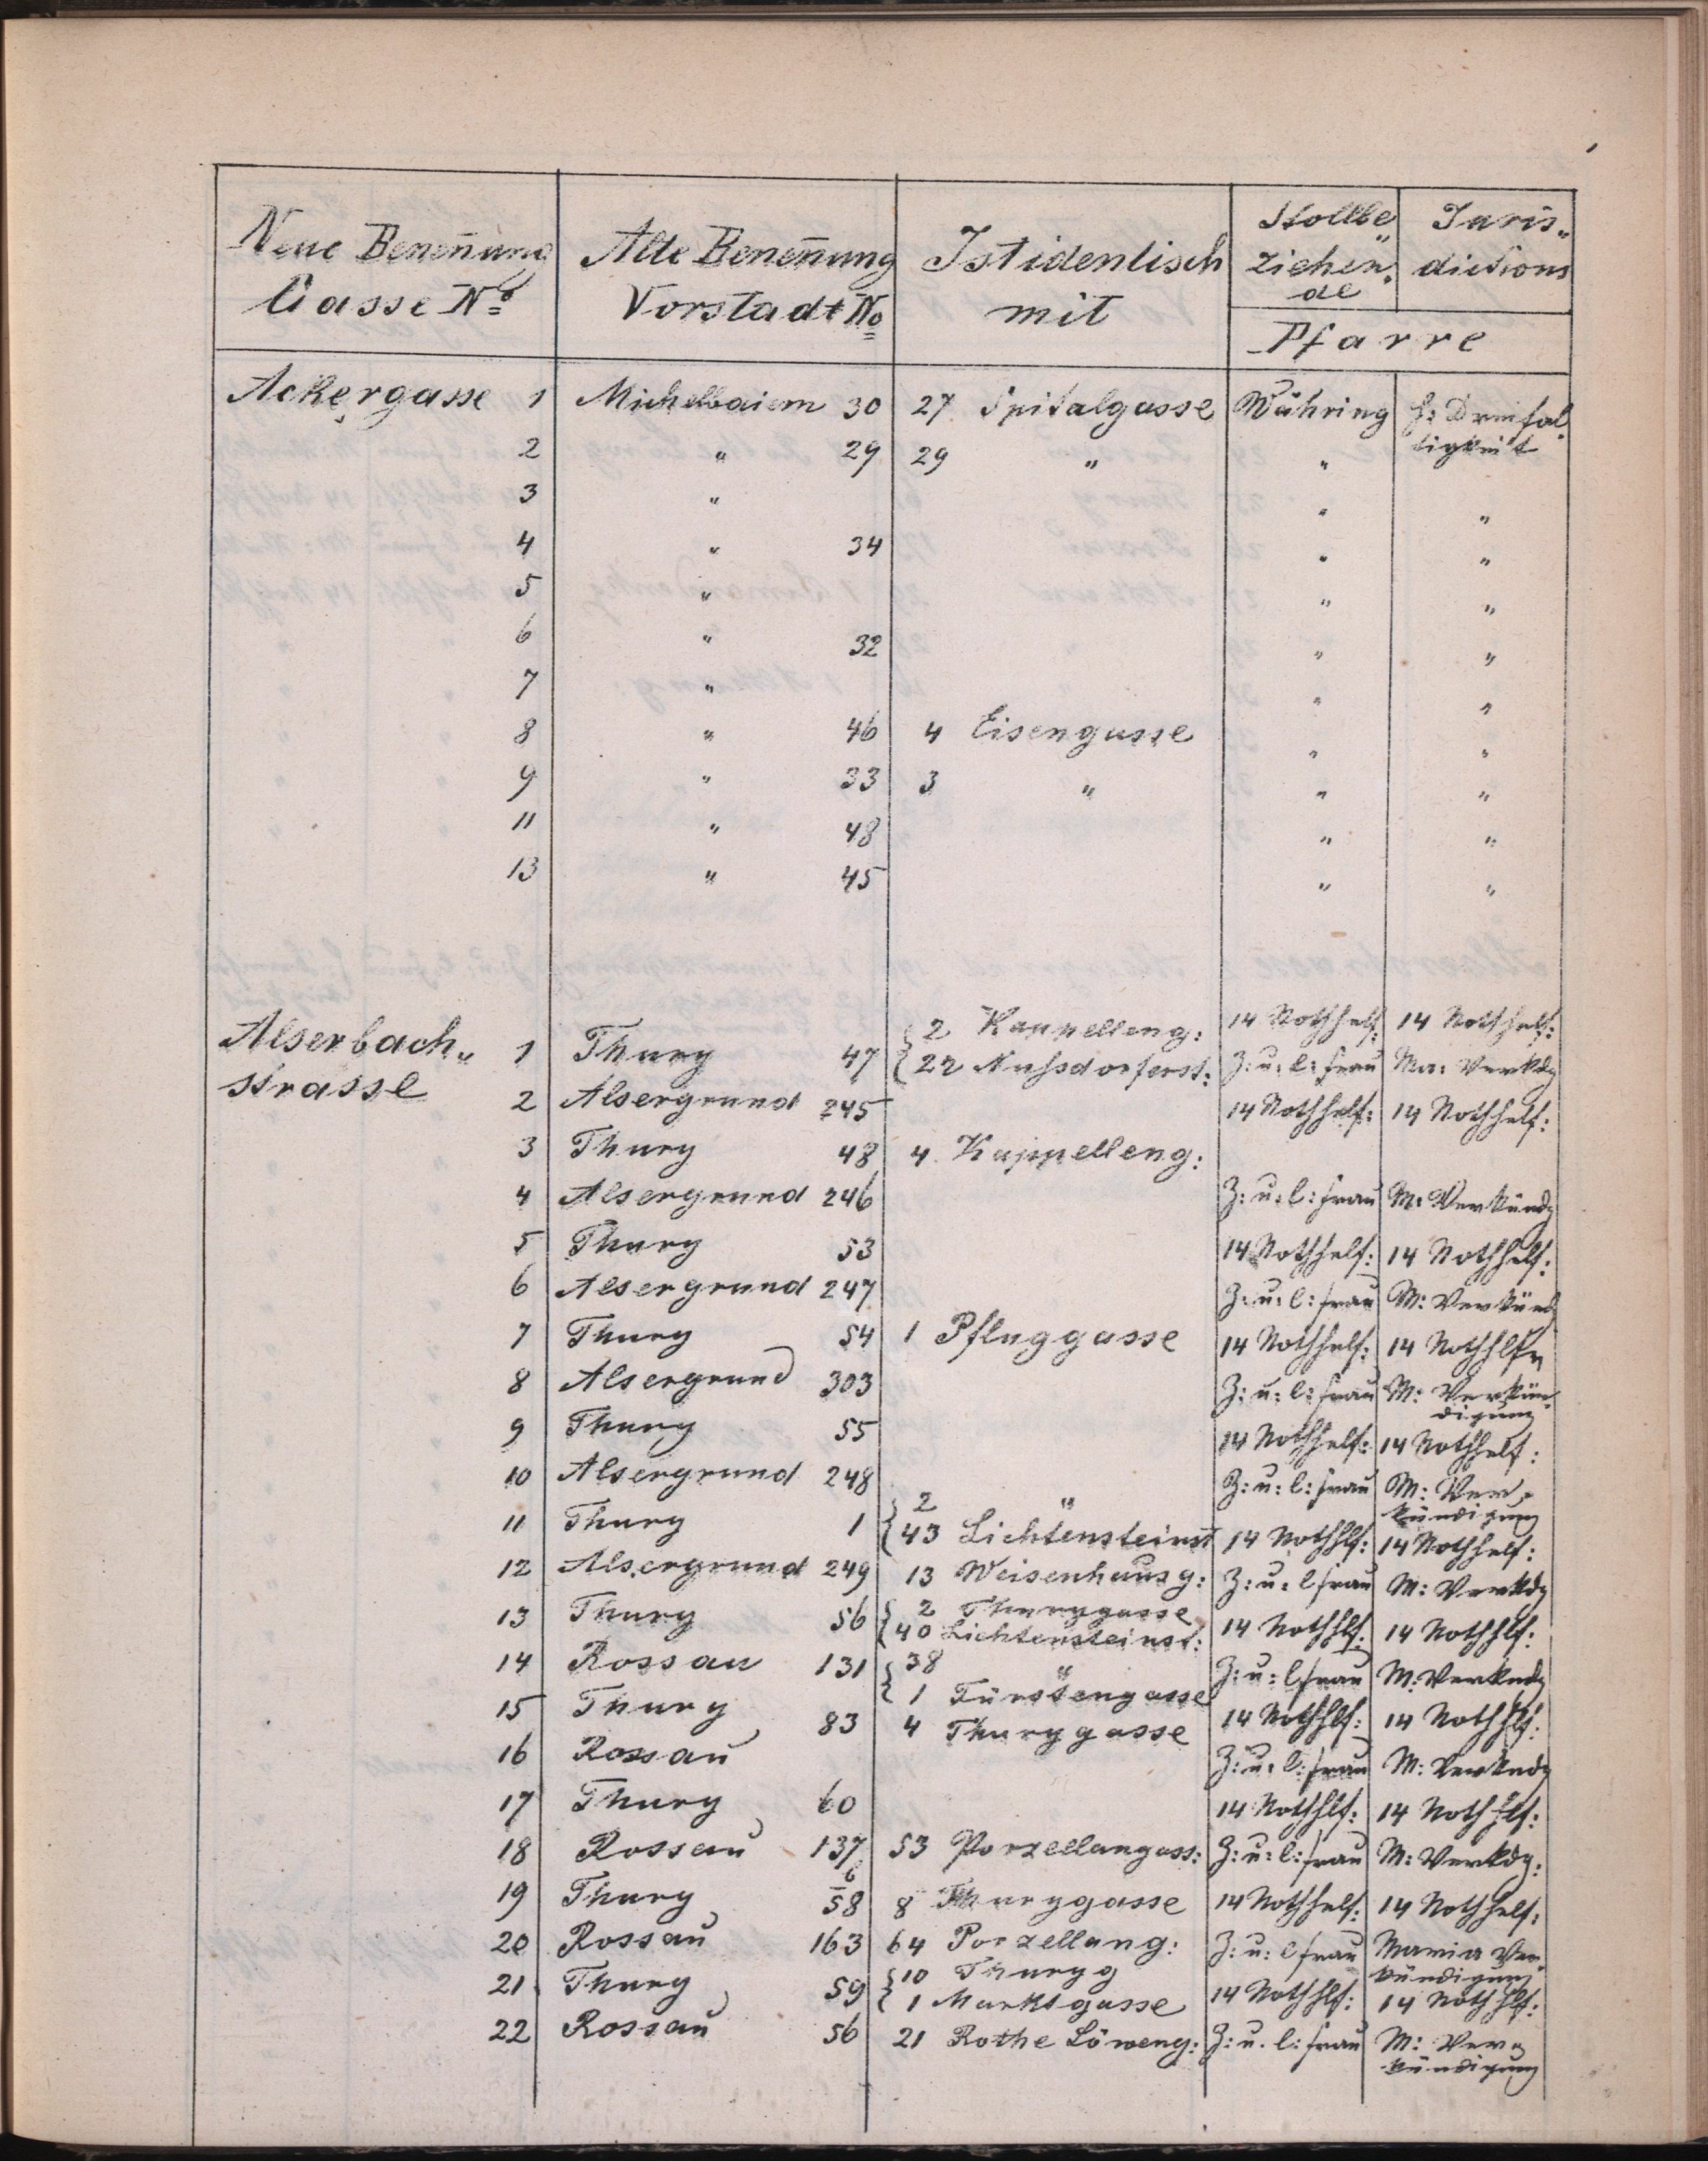 Neue Benen̄ung Alte Benen̄ung Ist identisch Stollbe„ Juris„
Gasse No Vorstadt No mit ziehen„ dictions
de
Pfarre
Ackergasse 1 Michelbaiern 30 27 Spitalgasse Währing h: Dreifal„
2 " 29 29 " " tigkeit
3 " " "
4 " 34 " "
5 " " "
6 " 32 " "
7 " " "
8 " 46 4 Eisengasse " "
9 " 33 3 " " "
11 " 48 " "
13 " 45 " "
Alserbach„ 1 Thury 47 { 2 Kappelleng: 14 Nothhelf: 14 Nothhelf:
strasse { 22 Nußdorferst: Z: u: l: Frau Ma: Verkdg
2 Alsergrund 245 14 Nothhelf: 14 Nothhelf:
3 Thury 48 4 Kappelleng:
4 Alsergrund 246 Z: u: l: Frau M: Verkündg
5 Thury 53 14 Nothhelf: 14 Nothhelf:
6 Alsergrund 247 Z: u: l: Frau M: Verkünd
7 Thury 54 1 Pfluggasse 14 Nothhelf: 14 Nothhlfr
8 Alsergrund 303 Z: u: l: Frau M: Verkün„
digung
9 Thury 55 14 Nothhelf: 14 Nothhelf:
10 Alsergrund 248 Z: u: l: Frau M: Ver„
kündigung
11 Thury 1 { 2 "
{ 43 Lichtensteinst 14 Nothhlf: 14 Nothhelf:
12 Alsergrund 249 13 Weisenhausg: Z: u: l Frau M: Verkdg
13 Thury 56 { 2 Thurygasse
{ 40 Lichtensteinst: 14 Nothhlf: 14 Nothhlf:
14 Rossau 131 { 38 " Z: u: l Frau M: Verkndg
{ 1 Fürstengasse
15 Thury 83 4 Thurygasse 14 Nothhlf: 14 Nothhlf:
16 Rossau Z: u: l: Frau M: Verkndg
17 Thury 60 14 Nothhlf: 14 Nothhlf:
18 Rossau 137 53 Porzellangass: Z: u: l: Frau M: Verkdg:
19 Thury 58 8 Thurygasse 14 Nothhelf: 14 Nothhelf:
20 Rossau 163 64 Porzellang: Z: u: l Frau Maria Ver„
kündigung
21 Thury 59 { 10 Thuryg
{ 1 Marktgasse 14 Nothhlf: 14 Nothhlf:
22 Rossau 56 21 Rothe Löweng: Z: u. l: Frau M: Ver„
kündigung